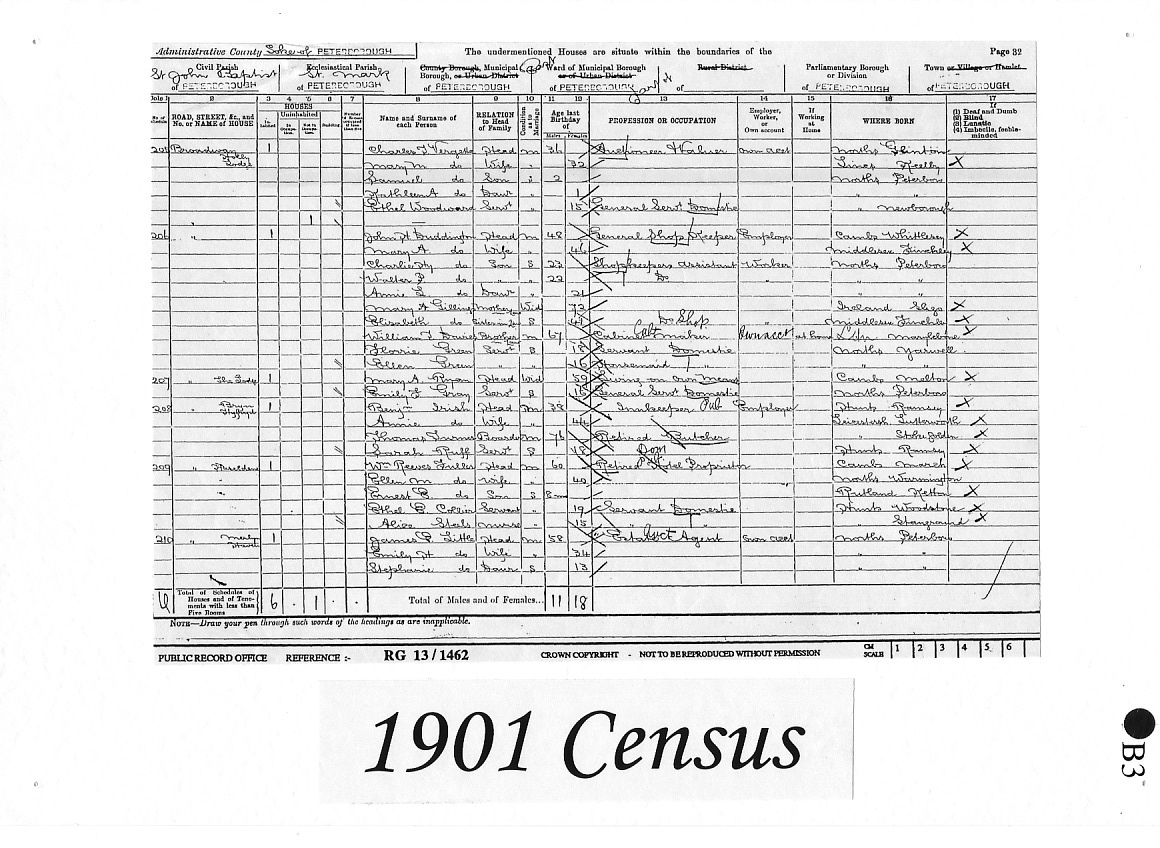 Administrative County Soke of PETERBOROUGH The undermentioned Houses are situate within the boundaries of the Page 32
Civil Parish Ecclesiastical Parish County Borough, Municipal Ward of Municipal Borough Rural District Parliamentary Borough Town or Village or Hamlet
St John Baptist St. Mark Borough, or Urban District or of Urban District or Division
of PETERBOROUGH of PETERBOROUGH of PETERBOROUGH of PETERBOROUGH of of PETERBOROUGH of PETERBOROUGH
1 2 3 4 5 6 7 8 9 10 11 12 13 14 15 16 17
No. of Schedule ROAD, STREET, &c., and No. or NAME of HOUSE HOUSES Inhabited Uninhabited In Occupation Not in Occupation Building Name and Surname of each Person RELATION to Head of Family Condition as to Marriage Age last Birthday of Males Females PROFESSION OR OCCUPATION Employer, Worker, or Own account If Working at Home WHERE BORN If (1) Deaf and Dumb (2) Blind (3) Lunatic (4) Imbecile, feeble-minded
205 Broadway 1 Charles J Vergette Head M 36 Auctioneer & Valuer Own acct Norths Glinton
Mary M. do Wife " 32 Lincs
Samuel do Son 2 Norths Peterboro
Kathleen A do Daur 1 " "
Ethel Woodward Servt 15 General Servt Domestic " Newborough
" 1
206 " 1 John H Duddington Head M 48 General Shop Keeper Employer Cambs Whittlesey
Mary A. do Wife " 46 Middlesex Finchley
Charlie Hy do Son S 23 Shopkeepers Assistant Worker Norths Peterboro
Walter P do " " 22 Do " "
Annie L do Daur " 21 " "
Mary A Mother Wid 72 Ireland Sligo
Elizabeth do S 47 Do Shop " Middlesex Finchley
William J Davies M 67 Cabinet Maker Own acct at home Marylebone
Florrie Servt S 18 Servant Domestic Norths Yarwell
Ellen " " 16 Housemaid " "
207 " The Lodge 1 Mary A. Ryan Head Wid 59 Living on Own Means Cambs
Emily E Gray Servt S 15 General Servt Domestic Norths Peterboro
208 " 1 Benjn Irish Head M 38 Innkeeper Pub Employer Hunts Ramsey
Annie do Wife " 44 Leicestersh Lutterworth
Thomas Turner Boarder M 76 Retired Butcher "
Sarah Ruff Servt S 18 Dom Hunts Ramsey
209 " 1 Wm Reeves Fuller Head M 60 Retired Hotel Proprietor Cambs March
Ellen M. do Wife " 40 Norths Warmington
Ernest do Son S 8 m Rutland Ketton
Ethel Collier Servant " 19 Servant Domestic Hunts Woodstone
Alice Nurse " 15 " " " Stanground
210 " 1 James P. Little Head M 58 Estate Agent Own acct Norths Peterboro
Emily H do Wife " 34 " "
Stephanie do Daur S 13 " "
Total of Schedules of Houses and of Tenements with less than Five Rooms 6 . 1 . . Total of Males and of Females... 11 18
NOTE—Draw your pen through such words of the headings as are inapplicable.
PUBLIC RECORD OFFICE REFERENCE :- RG 13/1462 CROWN COPYRIGHT - NOT TO BE REPRODUCED WITHOUT PERMISSION CM SCALE 1 2 3 4 5 6
1901 Census
B3